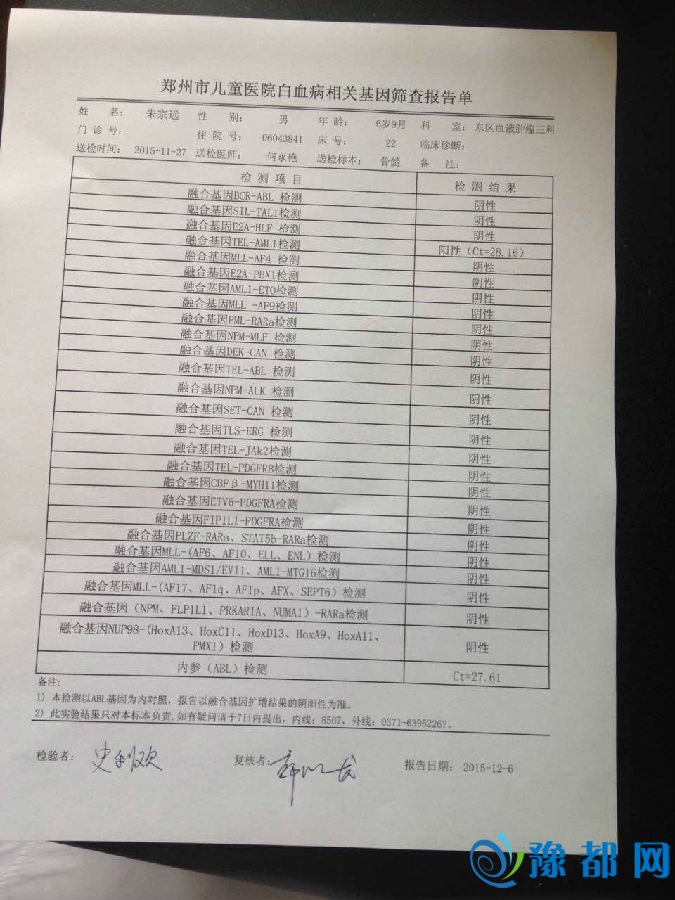 郑州市儿童医院白血病相关基因筛查报告单
姓 名: 朱宗远 性 别: 男 年 龄: 6岁9月 科 室: 东区血液肿瘤三科
门诊号: 住院号: 06043841 床 号: 22 临床诊断:
送检时间: 2015-11-27 送检医师: 何永艳 送检标本: 骨髓 备 注:
检测项目 检测结果
融合基因BCR-ABL 检测 阴性
融合基因SIL-TAL1检测 阴性
融合基因E2A-HLF 检测 阴性
融合基因TEL-AML1检测 阳性(Ct=28.16)
融合基因MLL-AF4 检测 阴性
融合基因E2A-PBX1检测 阴性
融合基因AML1-ETO检测 阴性
融合基因MLL -AF9检测 阴性
融合基因PML-RARa检测 阴性
融合基因NPM-MLF 检测 阴性
融合基因DEK-CAN 检测 阴性
融合基因TEL-ABL 检测 阴性
融合基因NPM-ALK 检测 阴性
融合基因SET-CAN 检测 阴性
融合基因TLS-ERG 检测 阴性
融合基因TEL-JAk2检测 阴性
融合基因TEL-PDGFRB检测 阴性
融合基因CBFβ-MYH11检测 阴性
融合基因ETV6-PDGFRA检测 阴性
融合基因FIP1L1-PDGFRA检测 阴性
融合基因PLZF-RARa、STAT5b-RARa检测 阴性
融合基因MLL-(AF6、AF10、ELL、ENL) 检测 阴性
融合基因AML1-MDS1/EVI1、AML1-MTG16检测 阴性
融合基因MLL-(AF17、AF1q、AF1p、AFX、SEPT6) 检测 阴性
融合基因 (NPM、FLP1L1、PRKAR1A、NUMA1) -RARa检测 阴性
融合基因NUP98-(HoxA13、HoxC11、HoxD13、HoxA9、HoxA11、
PMX1) 检测 阴性
内参 (ABL) 检测 Ct=27.61
备注:
1) 本检测以ABL基因为内对照,报告以融合基因扩增结果的阴阳性为准。
2) 此实验结果只对本标本负责,如有疑问请于7日内提出,内线: 8507, 外线: 0371-63952267.
检验者: 复核者: 报告日期: 2015-12-6
豫都网